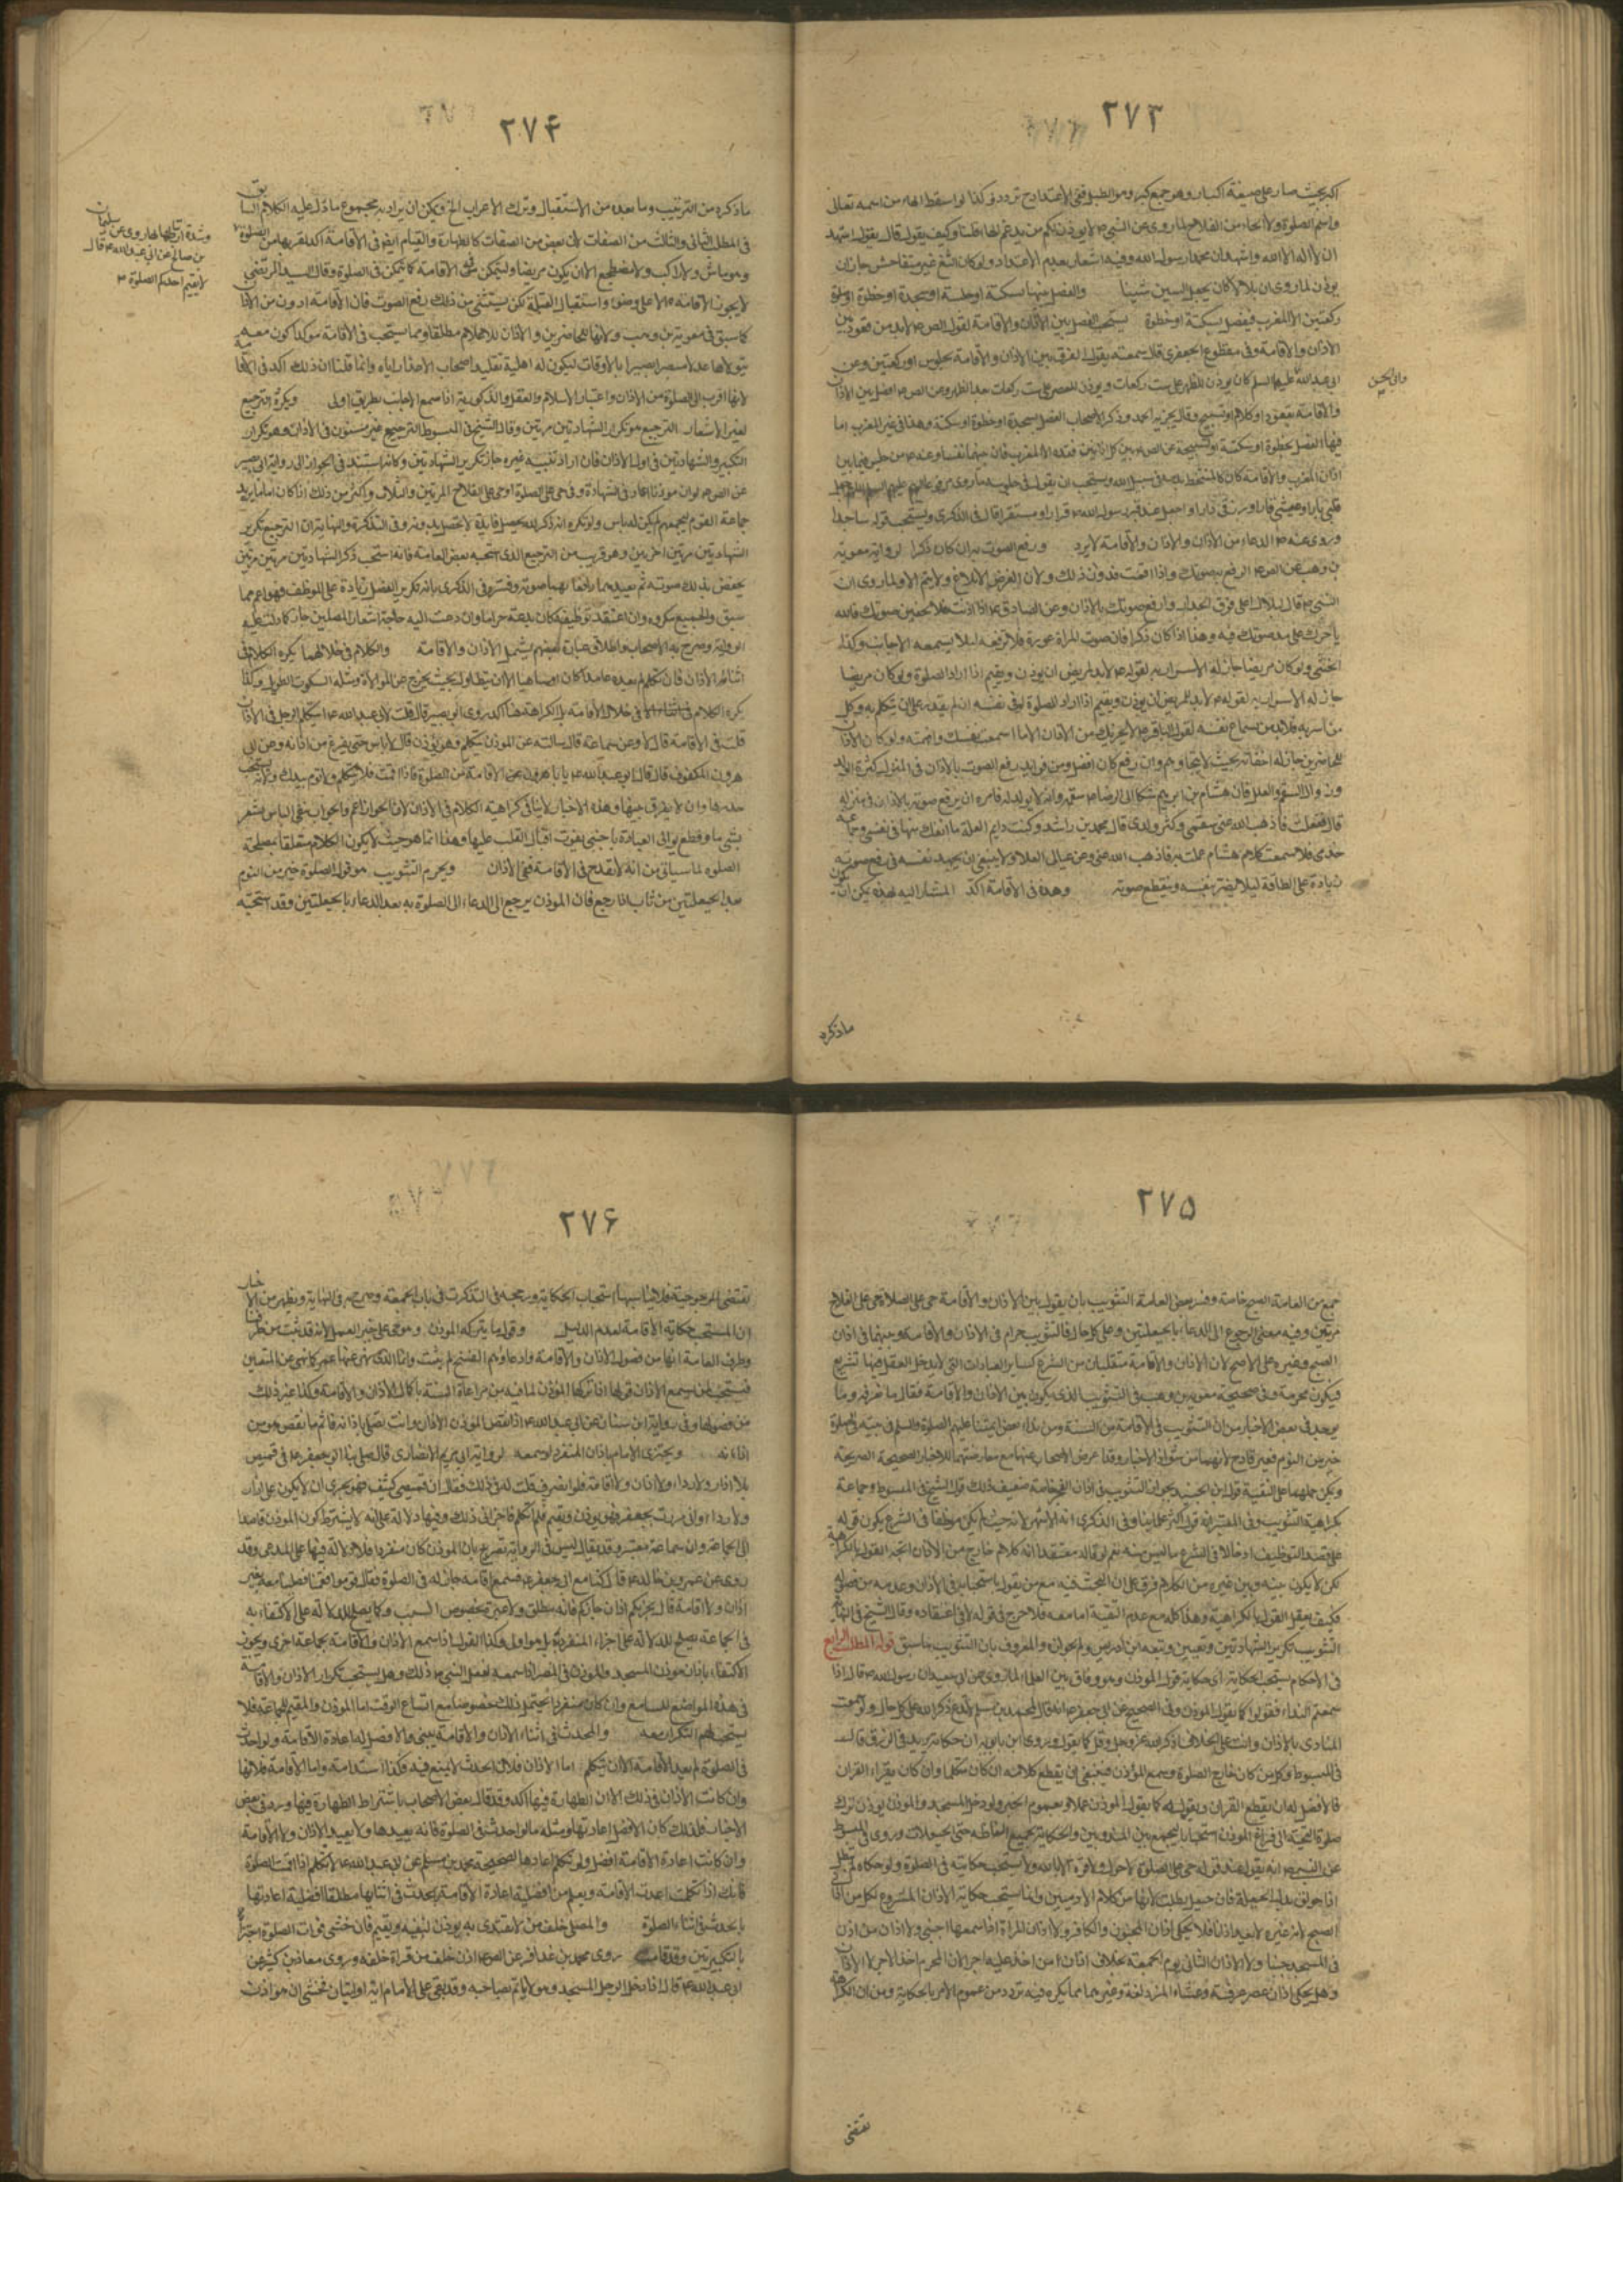 ٢٧٣
اكبر بحيث صار على صيغة اكبار وهو جمع كبر وهو الطبل ففى الاعتداد به تردد وكذا لو اسقط الهاء من اسمه تعالى
واسم الصلوة والحاء من الفلاح لما روى عن النبى ص لا يؤذن لكم من يدغم الهاء قلنا وكيف يقول قال يقول اشهد
ان لا اله الا الله واشهد ان محمدا رسول الله وفيه اشعار بعدم الاعتداد ولو كان الثغ غير متفاحش جاز ان
يؤذن لما روى ان بلالا كان يجعل الشين سينا والفصل بينهما بسكتة او جلسة او سجدة او خطوة او صلوة
ركعتين الا المغرب فيفصل بسكتة او خطوة يستحب الفصل بين الاذان والاقامة لقول الص لابد من قعود بين
الاذان والاقامة وفى مقطوع الجعفرى قال سمعته يقول افرق بين الاذان والاقامة بجلوس او ركعتين وعن
وابى الحسن
ابى عبد الله عليهما السلم كان يؤذن للظهر على ست ركعات ويؤذن للعصر على ست ركعات بعد الظهر وعن الص افصل بين الاذان
والاقامة بقعود او كلام او تسبيح وقال يجزيه الحمد وذكر الاصحاب الفصل بسجدة او خطوة او سكتة وهذا فى غير المغرب اما
فيها الفصل بخطوة او سكتة او تسبيحة عن الص بين كل اذانين قعدة الا المغرب فان بينهما نفسا وعنه من جلس فيما بين
اذان المغرب والاقامة كان كالمتشحط بدمه فى سبيل الله ويستحب ان يقول فى جلوسه ما روى مرفوعا اليهم عليهم السلم اللهم اجعل
قلبى بارا وعيشى قارا ورزقى دارا واجعل عند قبر رسول الله قرارا ومستقرا قال فى الذكرى ويستحب قوله ساجدا
وروى عنه الدعاء بين الاذان والاقامة لا يرد ورفع الصوت به ان كان ذكرا لرواية معوية
بن وهب عن الص ارفع به صوتك واذا اقمت فدون ذلك ولان الغرض الابلاغ ولا يتم الا به ولما روى ان
النبى قال لبلال اعل فوق الجدار وارفع صوتك بالاذان وعن الصادق اذا اذنت فلا تخفين صوتك فان الله
ياجرك على مد صوتك فيه وهذا اذا كان ذكرا فان صوت المراة عورة فلا ترفعه لئلا يسمعه الاجانب وكذا
الخنثى ولو كان مريضا جاز له الاسرار به لقوله لابد للمريض ان يؤذن ويقيم اذا اراد الصلوة ولو كان مريضا
جاز له الاسرار به لقوله لابد للمريض ان يؤذن ويقيم اذا اراد الصلوة ولو فى نفسه ان لم يقدر على ان يتكلم به وكل
من اسر به فلابد من سماع نفسه لقول الباقر لا يجزيك من الاذان الا ما اسمعت نفسك وافهمته ولو كان الاذان
للحاضرين جاز له اخفاته بحيث لا يتجاوزهم وان رفع كان افضل ومن فوايد رفع الصوت بالاذان فى المنزل كثرة الولد
وزوال السقم والعلل فان هشام بن ابراهيم شكا الى الرضا سقمه وانه لا يولد له فامره ان يرفع صوته بالاذان فى منزله
قال ففعلت فاذهب الله عنى سقمى وكثر ولدى قال محمد بن راشد وكنت دايم العلة ما انفك منها فى نفسى وجماعة
خدمى فلما سمعت كلام هشام عملت به فاذهب الله عنى وعن عيالى العلل ولا ينبغى ان يجهد نفسه فى رفع صوته
زيادة على الطاقة لئلا يضر بنفسه وينقطع صوته وهذه فى الاقامة اكد المشار اليه بهذه يمكن ان يكون
ماذكره
٢٧۴
ماذكره من الترتيب وما بعده من الاستقبال وترك الاعراب الخ ويمكن ان يراد به مجموع ما دل عليه الكلام السابق
فى المطلب الثانى والثالث من الصفات لان بعض من الصفات كالطهارة والقيام ايضا فى الاقامة اكد لقربها من الصلوة
وشدة ارتباطها بها روى عن سليمان
بن صالح عن ابى عبد الله قال
لا يقيم احدكم الصلوة
وهو ماش ولا راكب ولا مضطجع الا ان يكون مريضا وليتمكن فى الاقامة كما يتمكن فى الصلوة وقال السيد المرتضى
لا يجوز الاقامة الا على وضوء واستقبال القبلة لكن يستثنى من ذلك رفع الصوت فان الاقامة ادون من الاذان
كما سبق فى معوية بن وهب ولانها للحاضرين والاذان للاعلام مطلقا ومما يستحب فى الاقامة موكدا كون مقيمه
يتولاها عدلا مبصرا بصيرا بالاوقات ليكون له اهلية تقليد اصحاب الاعذار اياه وانما قلنا ان ذلك اكد فى الاقامة
لانها اقرب الى الصلوة من الاذان واعتبار الاسلام والعقل والذكورية اذا سمع الاجانب بطريق اولى ويكره الترجيع
لغير الاشعار الترجيع هو تكرار الشهادتين مرتين وقال الشيخ فى المبسوط الترجيع غير مسنون فى الاذان وهو تكرار
التكبير والشهادتين فى اول الاذان فان اراد تنبيه غيره جاز تكرير الشهادتين وكانه استند فى الجواز الى رواية ابى بصير
عن الص لو ان موذنا اعاد فى الشهادة وفى حى على الصلوة او حى على الفلاح المرتين والثلاث واكثر من ذلك اذا كان اماما يريد
جماعة القوم ليجمعهم لم يكن به باس ولو تكره انه ذكر لله يحصل فايدة لا تحصل بدونه وفى التذكرة والنهاية ان الترجيع تكرير
الشهادتين مرتين اخريين وهو قريب من الترجيع الذى استحبه بعض العامة فانه استحب ذكر الشهادتين مرتين مرتين
يخفض بذلك صوته ثم يعيدهما رافعا بهما صوته وفسره فى الذكرى بانه تكرير الفصل زيادة على الموظف فهو اعم مما
سبق والجميع مكروه وان اعتقد توظيفه كان بدعة حراما وان دعت اليه حاجة اشعار المصلين جاز كما دلت عليه
الرواية وصرح به الاصحاب واطلاق عبارة بعضهم يشمل الاذان والاقامة والكلام فى خلالهما يكره الكلام فى
اثناء الاذان فان تكلم لم يعده عامدا كان او ساهيا الا ان يتطاول بحيث يخرج عن الموالاة ومثله السكوت الطويل وكذا
يكره الكلام فى خلال الاقامة بل الكراهة هنا اكد روى ابو بصير قال قلت لابى عبد الله ايتكلم الرجل فى الاذان
قلت فى الاقامة قال لا وعن سماعة قال سالته عن الموذن يتكلم وهو يؤذن قال لا باس حتى يفرغ من اذانه وعن ابى
هرون المكفوف قال قال ابو عبد الله يا ابا هرون الاقامة من الصلوة فاذا اقمت فلا تتكلم ولا توم بيدك ولانه يستحب
حدرها وان لا يفرق بينها وهذه الاخبار لا ينافى كراهية الكلام فى الاذان لان الجواز اعم والجواب بنفى الباس يشعر
بشى ما وقطع توالى العبادة باجنبى يفوت اقبال القلب عليها وهذا انما هو حيث لا يكون الكلام متعلقا بمصلحة
الصلوة لما سياتى من انه لا يقدح فى الاقامة ففى الاذان ويحرم التثويب هو قول الصلوة خير من النوم
بعد الحيعلتين من ثاب اذا رجع فان الموذن يرجع الى الدعاء الى الصلوة به بعد الدعاء بالحيعلتين وقد استحبه
٢٧۵
جمع من العامة الصبح خاصة وفسر بعض العامة التثويب بان يقول بين الاذان والاقامة حى على الصلاة حى على الفلاح
مرتين وفيه معنى الرجوع الى الدعاء بالحيعلتين وعلى كل حال فالتثويب حرام فى الاذان والاقامة وبينهما فى اذان
الصبح وغيره على الاصح لان الاذان والاقامة متلقيان من الشرع كساير العبادات التى لا يدخل العقل فيها تشريع
فيكون محرمة وفى صحيحة معوية بن وهب فى التثويب الذى يكون بين الاذان والاقامة فقال ما نعرفه وما
يوجد فى بعض الاخبار من ان التثويب فى الاقامة من السنة ومن نداء بعض ائمتنا عليهم الصلوة والسلم فى بيته بالصلوة
خير من النوم فغير قادح لانهما من شواذ الاخبار وقد اعرض الاصحاب عنها مع معارضتهما للاخبار الصحيحة الصريحة
ويمكن حملهما على التقية قول ابن الجنيد بجواز التثويب فى اذان الفجر خاصة ضعيف وكذلك قول الشيخ فى المبسوط وجماعة
بكراهية التثويب وفى المعتبر انه قول اكثر علمائنا وفى الذكرى انه الاشهر لانه حيث لم يكن موظفا فى الشرع يكون قوله
على قصد التوظيف ادخالا فى الشرع ما ليس منه نعم لو قاله معتقدا انه كلام خارج من الاذان اتجه القول بالكراهة
لكن لا يكون بينه وبين غيره من الكلام فرق على ان البحث فيه مع من يقول باستحبابه فى الاذان وعده من فصوله
فكيف يعقل القول بالكراهية وهذا كله مع عدم التقية اما معه فلا حرج فى قوله لا فى اعتقاده وقال الشيخ فى النهاية
التثويب تكرير الشهادتين وتبعه ابن ادريس والمعروف بان التثويب ما سبق قوله المطلب الرابع
فى الاحكام يستحب الحكاية اى حكاية قول الموذن وهو وفاق بين العلماء لما روى عن ابى سعيد ان رسول الله قال اذا
سمعتم النداء فقولوا كما يقول الموذن وفى الصحيح عن ابى جعفر انه قال لمحمد بن مسلم لا تدع ذكر الله على كل حال ولو سمعت
المنادى بالاذان وانت على الخلاء فاذكر الله عز وجل وقل كما يقول وروى ابن بابويه ان حكايته يزيد فى الرزق قال
فى المبسوط وكل من كان خارج الصلوة وسمع المؤذن فينبغى ان يقطع كلامه ان كان متكلما وان كان يقراء القران
فالافضل له ان يقطع القران ويقول كما يقول الموذن عملا بعموم الخبر ولو دخل المسجد والموذن يوذن ترك
صلوة التحية الى فراغ الموذن استحبابا ليجمع بين المندوبين والحكاية لجميع الفاظه حتى الحيعلات وروى فى المبسوط
عن النبى انه يقول عند قوله حى على الصلوة لا حول ولا قوة الا بالله ولا يستحب حكايته فى الصلوة ولو حكاه لم تبطل
اذا حولق بدل الحيعلة فان حيعل بطلت لانها من كلام الادميين وانما يستحب حكاية الاذان المشروع لكل من اذان
الصبح لانه غيره لا يعد اذانا فلا يحكى اذان المجنون والكافر ولا اذان المراة اذا سمعها اجنبى ولا اذان من اذن
فى المسجد جنبا ولا الاذان الثانى يوم الجمعة بخلاف اذان من اخذ عليه اجرا لان المحرم اخذ الاجر لا الاذان
وهل يحكى اذان عصر عرفة وعشاء المزدلفة وغيرهما مما يكره فيه تردد من عموم الامر بالحكاية ومن ان الكراهة
تقتضى
٢٧۶
تقتضى المرجوحية فلا يناسبها استحباب الحكاية ورجحه فى التذكرة فى باب الجمعة وصرح به فى النهاية ويظهر من الاخبار
ان المستحب حكاية الاقامة لعدم الدليل وقول ما يتركه الموذن وهو حى على خير العمل لانه قد ثبت من طرقنا
وطرق العامة انها من فصول الاذان والاقامة وادعاؤهم النسخ لم يثبت وانما الذى نهى عنها عمر كما نهى عن المتعتين
فيستحب لمن سمع الاذان قولها اذا تركها الموذن لما فيه من مراعاة السنة باكمال الاذان والاقامة وكذا غير ذلك
من فصولها وفى رواية ابن سنان عن ابى عبد الله اذا نقص الموذن الاذان وانت تصلى باذانه فاتم ما نقص هو من
اذانه ويجتزى الامام باذان المنفرد لو سمعه لرواية ابى مريم الانصارى قال صلى بنا ابو جعفر فى قميص
بلا ازار ولا رداء ولا اذان ولا اقامة فلما انصرف قلت له فى ذلك فقال ان قميصى كثيف فهو يجزى ان لا يكون على ازار
ولا رداء وانى مررت بجعفر وهو يؤذن ويقيم فلم اتكلم فاجزانى ذلك وفيها دلالة على انه لا يشترط كون الموذن قاصدا
الى الجماعة وان سماعه معتبر وقد يقال ليس فى الرواية تصريح بان الموذن كان منفردا فلا دلالة فيها على المدعى وقد
روى عن عمرو بن خالد قال كنا مع ابى جعفر فسمع اقامة جار له فى الصلوة فقال قوموا فقمنا فصلينا معه بغير
اذان ولا اقامة قال يجزيكم اذان جاركم فانه مطلق ولا عبرة بخصوص السبب وكما يصلح للدلالة على الاكتفاء به
فى الجماعة يصلح للدلالة على اجزاء المنفرد بل هو اولى وكذا القول اذا سمع الاذان والاقامة بجماعة اخرى ويجوز
الاكتفاء باذان موذن المسجد والموذن فى المصر اذا سمعه لفعل النبى ذلك وهل يستحب تكرار الاذان والاقامة
فى هذه المواضع للسامع وان كان منفردا يحتمل ذلك خصوصا مع اتساع الوقت اما الموذن والمقيم للجماعة فلا
يستحب لهم التكرار معه والمحدث فى اثناء الاذان والاقامة يبنى والافضل له اعادة الاقامة ولو احدث
فى الصلوة لم يعد الاقامة الا ان يتكلم اما الاذان فلان الحدث لا يمنع فيه فكذا استدامته واما الاقامة فلانها
وان كانت الاذان فى ذلك الا ان الطهارة فيها اكد وقد قال بعض الاصحاب باشتراط الطهارة فيها ورد فى بعض
الاخبار فلذلك كان الافضل اعادتها ومثله ما لو احدث فى الصلوة فانه يعيدها ولا يعيد الاذان ولا الاقامة
وان كانت اعادة الاقامة افضل ولو تكلم اعادها لصحيحة محمد بن مسلم عن ابى عبد الله لا تتكلم اذا اقمت الصلوة
فانك اذا تكلمت اعدت الاقامة ويعلم من افضلية اعادة الاقامة بالحدث فى اثنائها مطلقا افضلية اعادتها
بالحدث فى اثناء الصلوة والمصلى خلف من لا يقتدى به يوذن لنفسه ويقيم فان خشى فوات الصلوة اجتزأ
بالتكبيرتين وقد قامت روى محمد بن عذافر عن الص اذن خلف من قراة خلفه وروى معاذ بن كثير عن
ابى عبد الله قال اذا دخل الرجل المسجد وهو لا ياتم بصاحبه وقد بقى على الامام اية او ايتان فخشى ان هو اذن